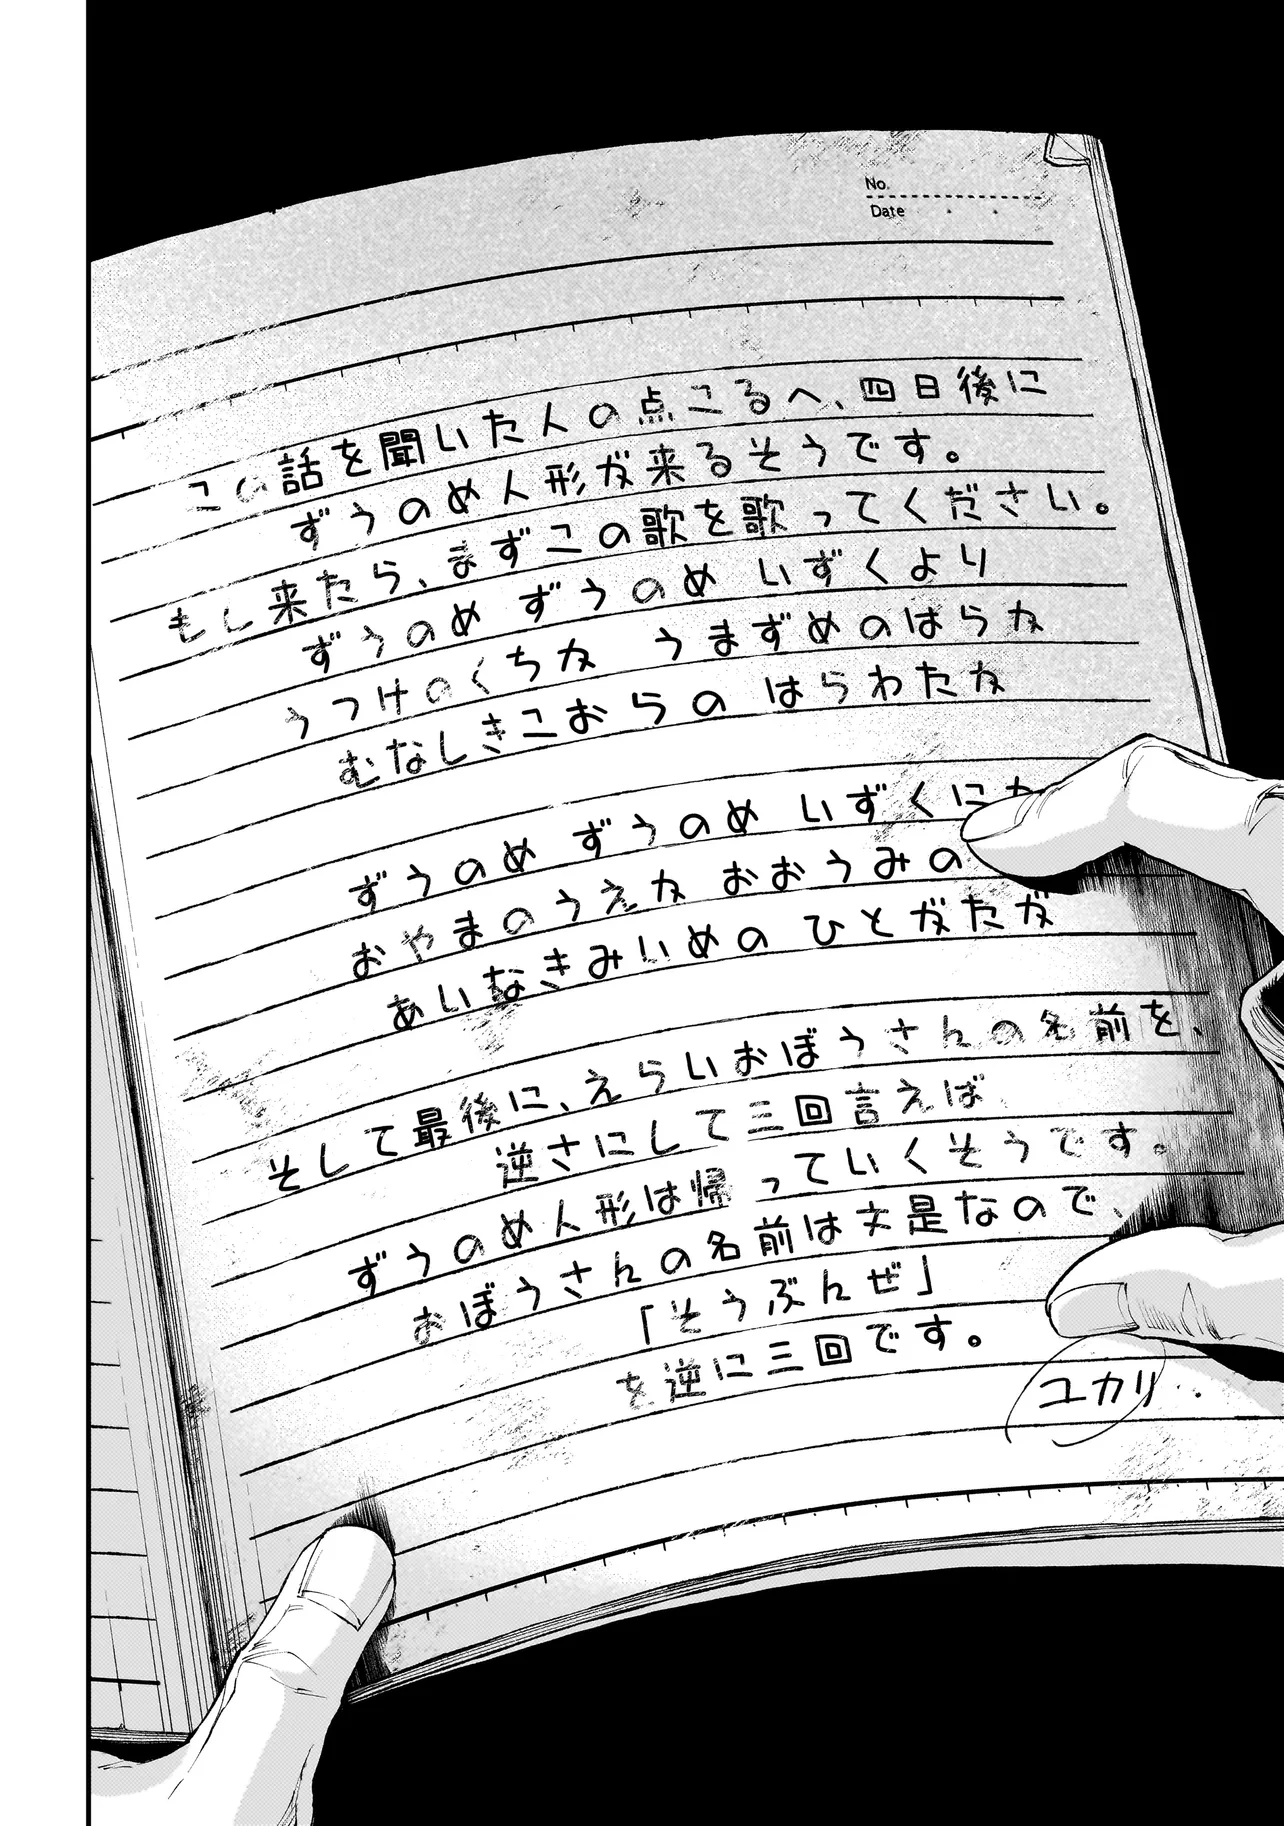 No.
Date
この話を聞いた人の点ころへ、四日後に
ずうのめ人形が来るそうです。
もし来たら、まずこの歌を歌ってください。
ずうのめ ずうのめ いずくより
うつけのくちか うまずめのはらか
むなしきこおらの はらわたか
ずうのめ ずうのめ いずくにか
おやまのうえか おおうみの
あいなきみいめの ひとがたが
そして最後に、えらいおぼうさんの名前を、
逆さにして三回言えば、
ずうのめ人形は帰っていくそうです。
おぼうさんの名前は文是なので、
「そうぶんぜ」
を逆に三回です。
ユカリ